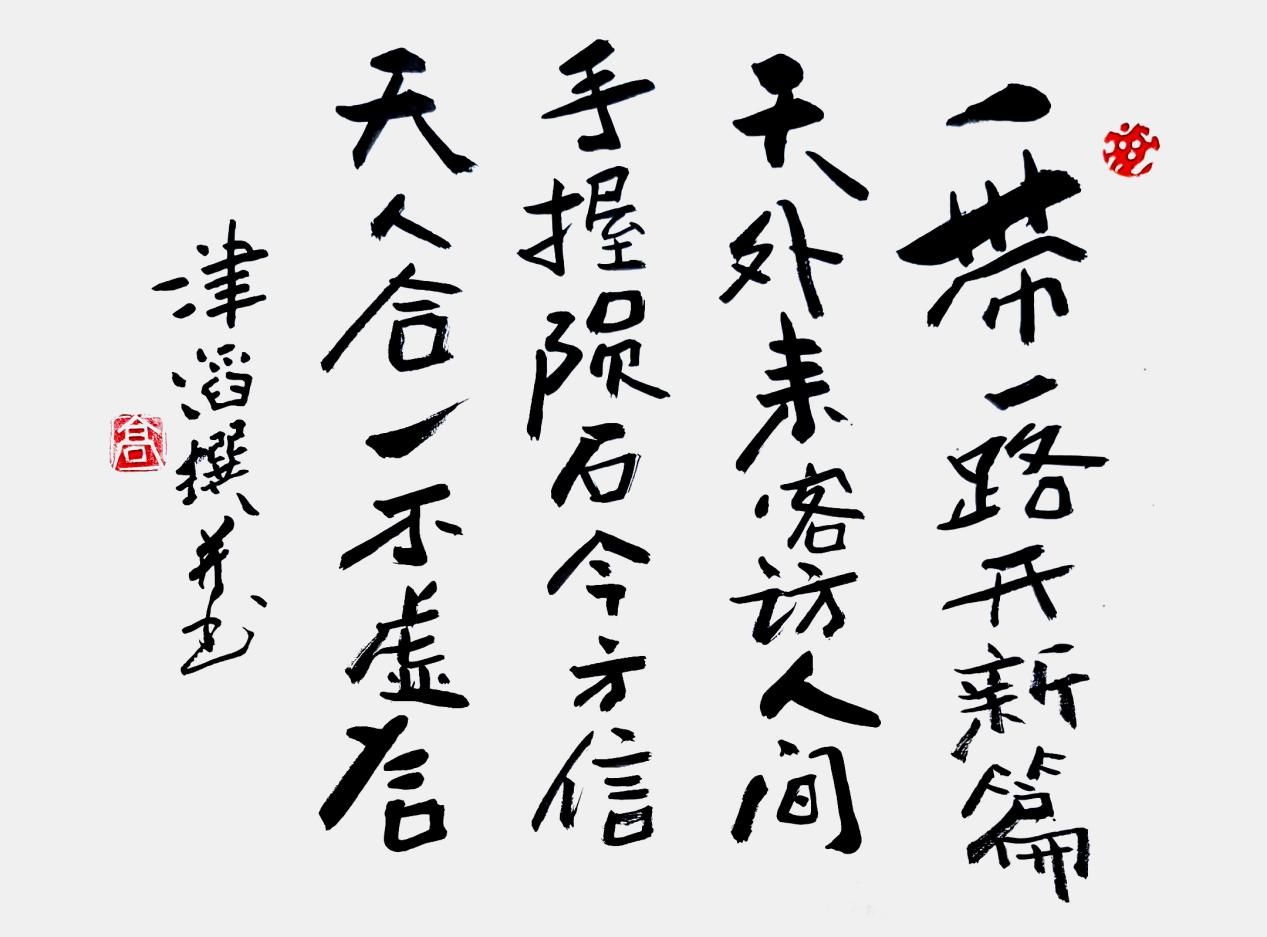 一带一路开新篇
天外来客访人间
手握陨石今方信
天人合一不虚言
津滔撰并书
高